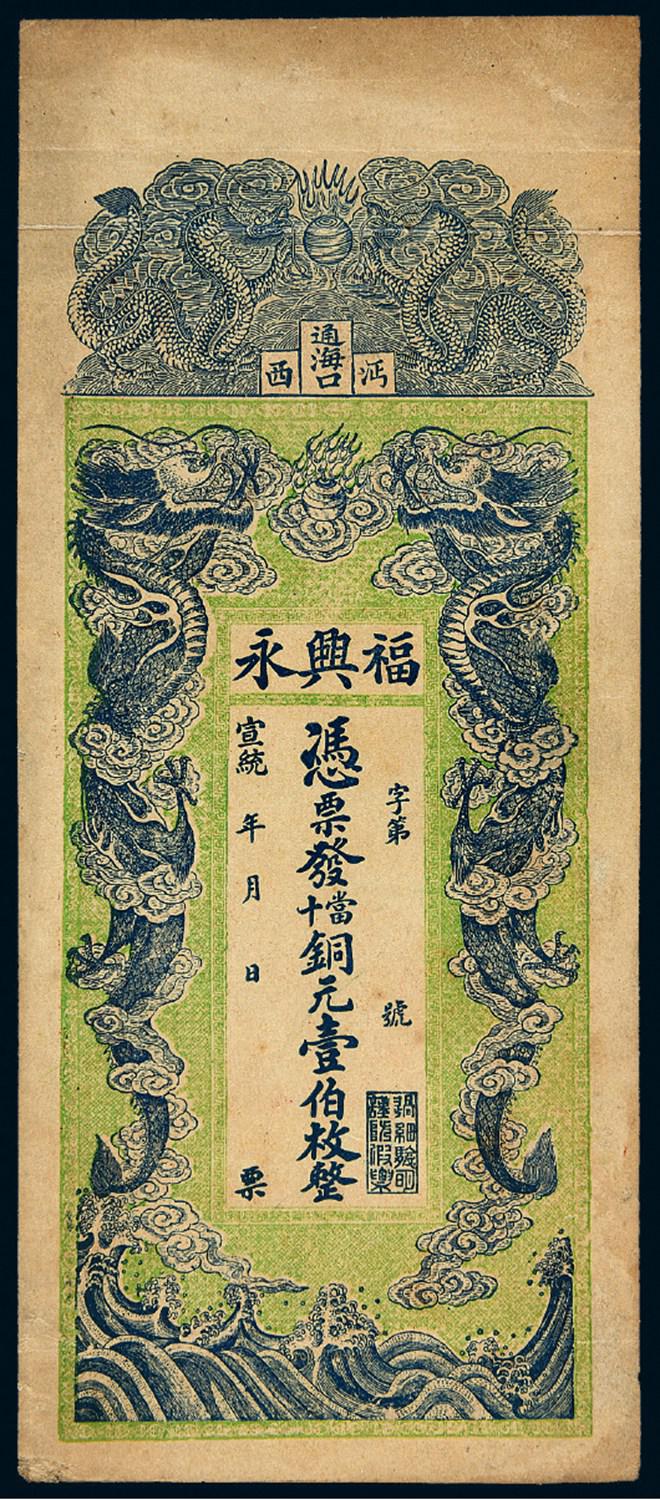 沔西
通海口
福興永
字第 號
過細驗明
謹防假票
憑票發當十銅元壹伯枚整
宣統 年 月 日 票